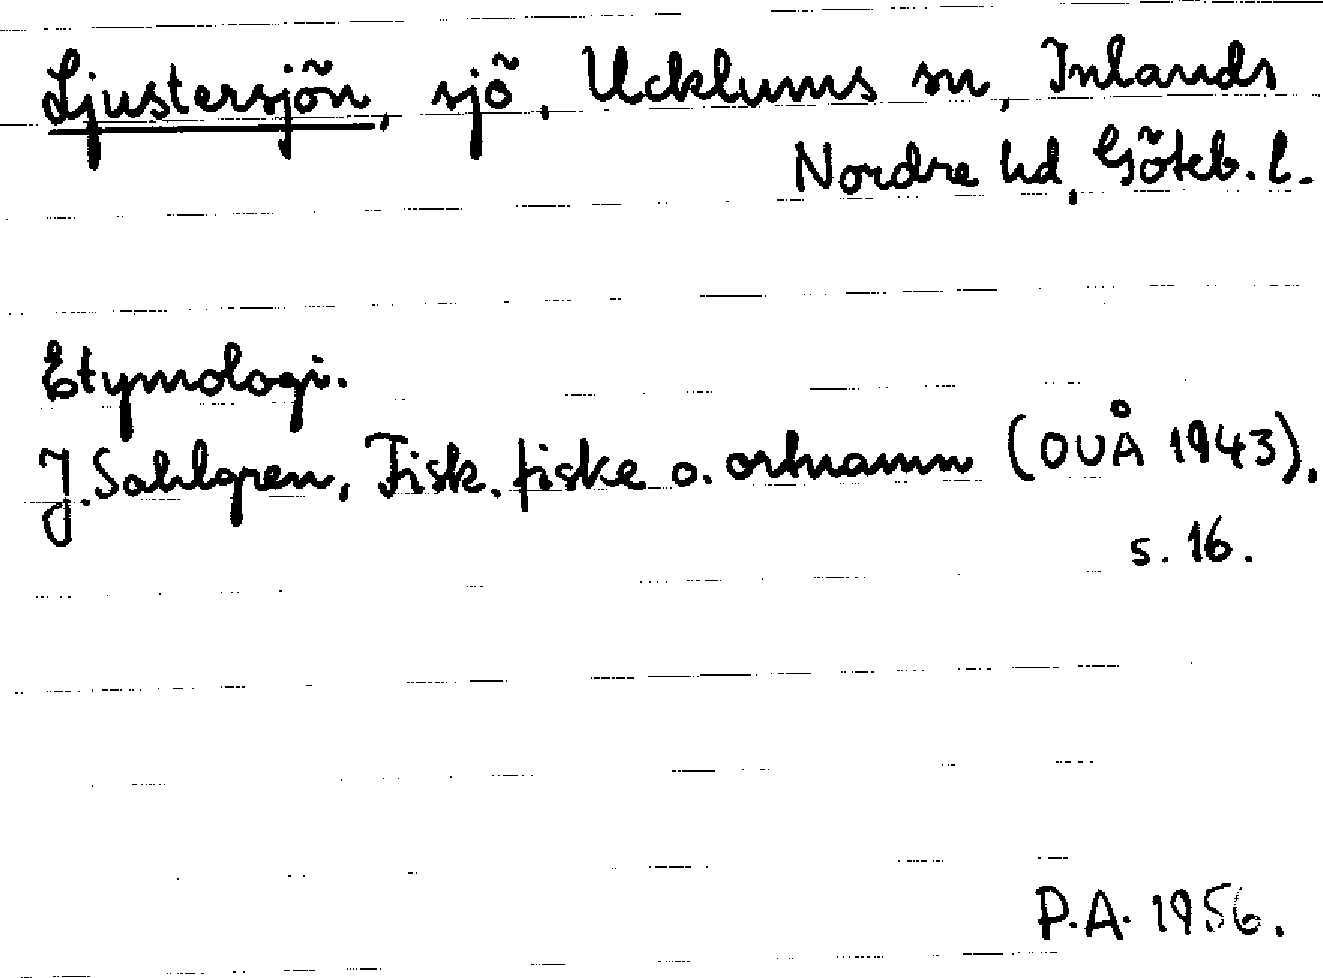 Ljustersjön, sjö, Ucklums sn, Inlands
Nordre hd, Göteb. l.
Etymologi.
J. Sahlgren, Fisk. fiske o. ortnamn (OUÅ 1943),
s. 16.
P.A. 1956.